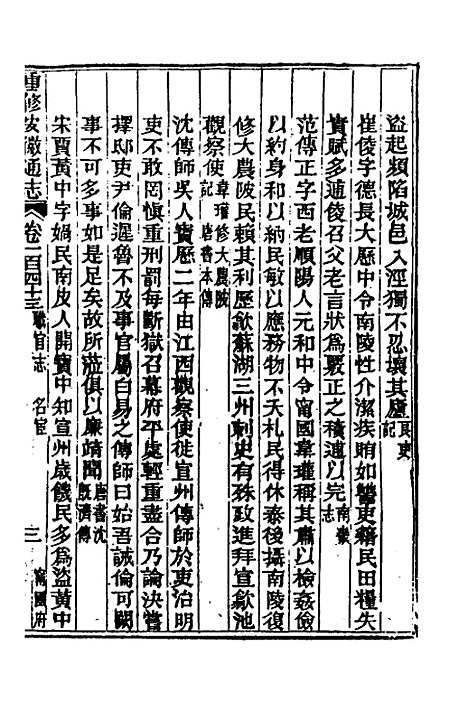 盜起頻陷城邑入涇獨不忍壞其廬良吏記
崔倰字德長大曆中令南陵性介潔疾賄如讐吏籍民田糧失
實賦多逋倰召父老言狀爲覈正之積逋以完南畿志
范傳正字西老順陽人元和中令甯國韋瓘稱其肅以檢姦儉
以約身和以納民敏以應務物不夭札民得休泰後攝南陵復
修大農陂民賴其利歷歙蘇湖三州刺史有殊政進拜宣歙池
觀察使韋瓘修大農陂記 唐書本傳
沈傳師吳人寶歷二年由江西觀察使徙宣州傳師於吏治明
吏不敢罔愼重刑罰每斷獄召幕府平處輕重盡合乃論決嘗
擇邸吏尹倫遲魯不及事官屬白易之傳師曰始吾誡倫可闕
事不可多事如是足矣故所蒞俱以廉靖聞唐書沈旣濟傳
宋賈黃中字媧民南皮人開寶中知宣州歲饑民多爲盜黃中
重修安徽通志 卷一百四十三 職官志 名宦 三 甯國府